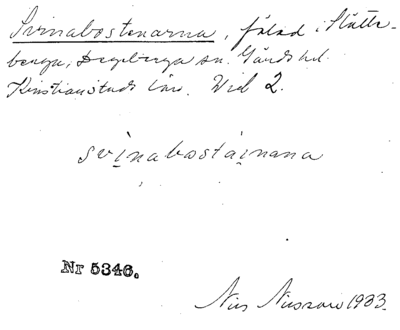 Svinabostenarna, fälad i Slätte-
berga, Degeberga sn. Gärds hd.
Kristianstads län. Vid 2.
svinabostainana
Nr 5346.
Nils Nilsson 1933.